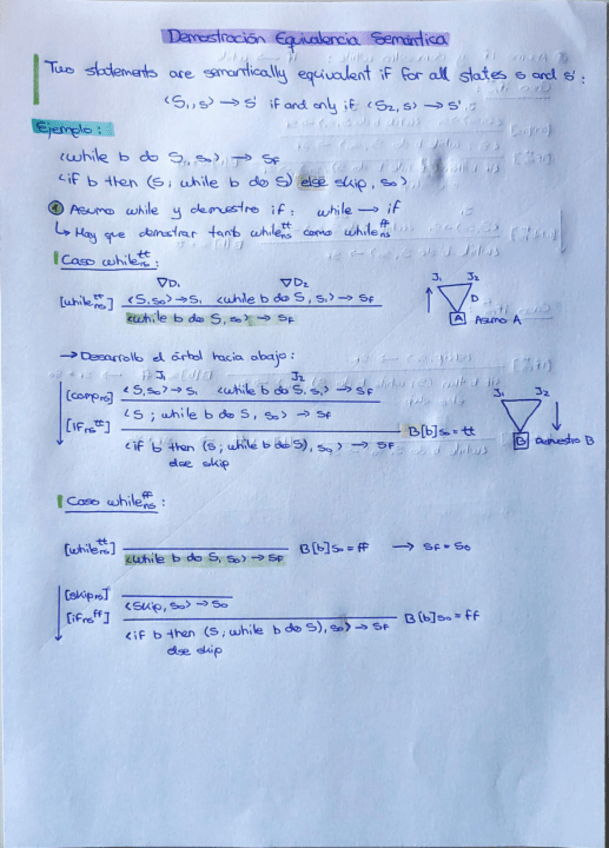 Demostración Equivalencia Semántica
Two statements are semantically equivalent if for all states s and s':
<S₁, s> → s' if and only if <S₂, s> → s'.
Ejemplo:
<while b do S, s₀> → sF
<if b then (S; while b do S) else skip, s₀>
① Asumo while y demuestro if: while → if
↳ Hay que demostrar tanto while_ns^tt como while_ns^ff
Caso while_ns^tt:
▽D₁ ▽D₂
[while_ns^tt] <S, s₀> → s₁ <while b do S, s₁> → sF
<while b do S, s₀> → sF
J₁ J₂
D
A Asumo A
→ Desarrollo el árbol hacia abajo:
J₁ J₂
[comp_ns] <S, s₀> → s₁ <while b do S, s₁> → sF
<S; while b do S, s₀> → sF
[if_ns^tt] B[b]s₀ = tt
<if b then (S; while b do S), s₀> → sF
else skip
J₁ J₂
B Demuestro B
Caso while_ns^ff:
[while_ns^tt] B[b]s₀ = ff → sF = s₀
<while b do S, s₀> → sF
[skip_ns]
<skip, s₀> → s₀
[if_ns^ff] B[b]s₀ = ff
<if b then (S; while b do S), s₀> → sF
else skip